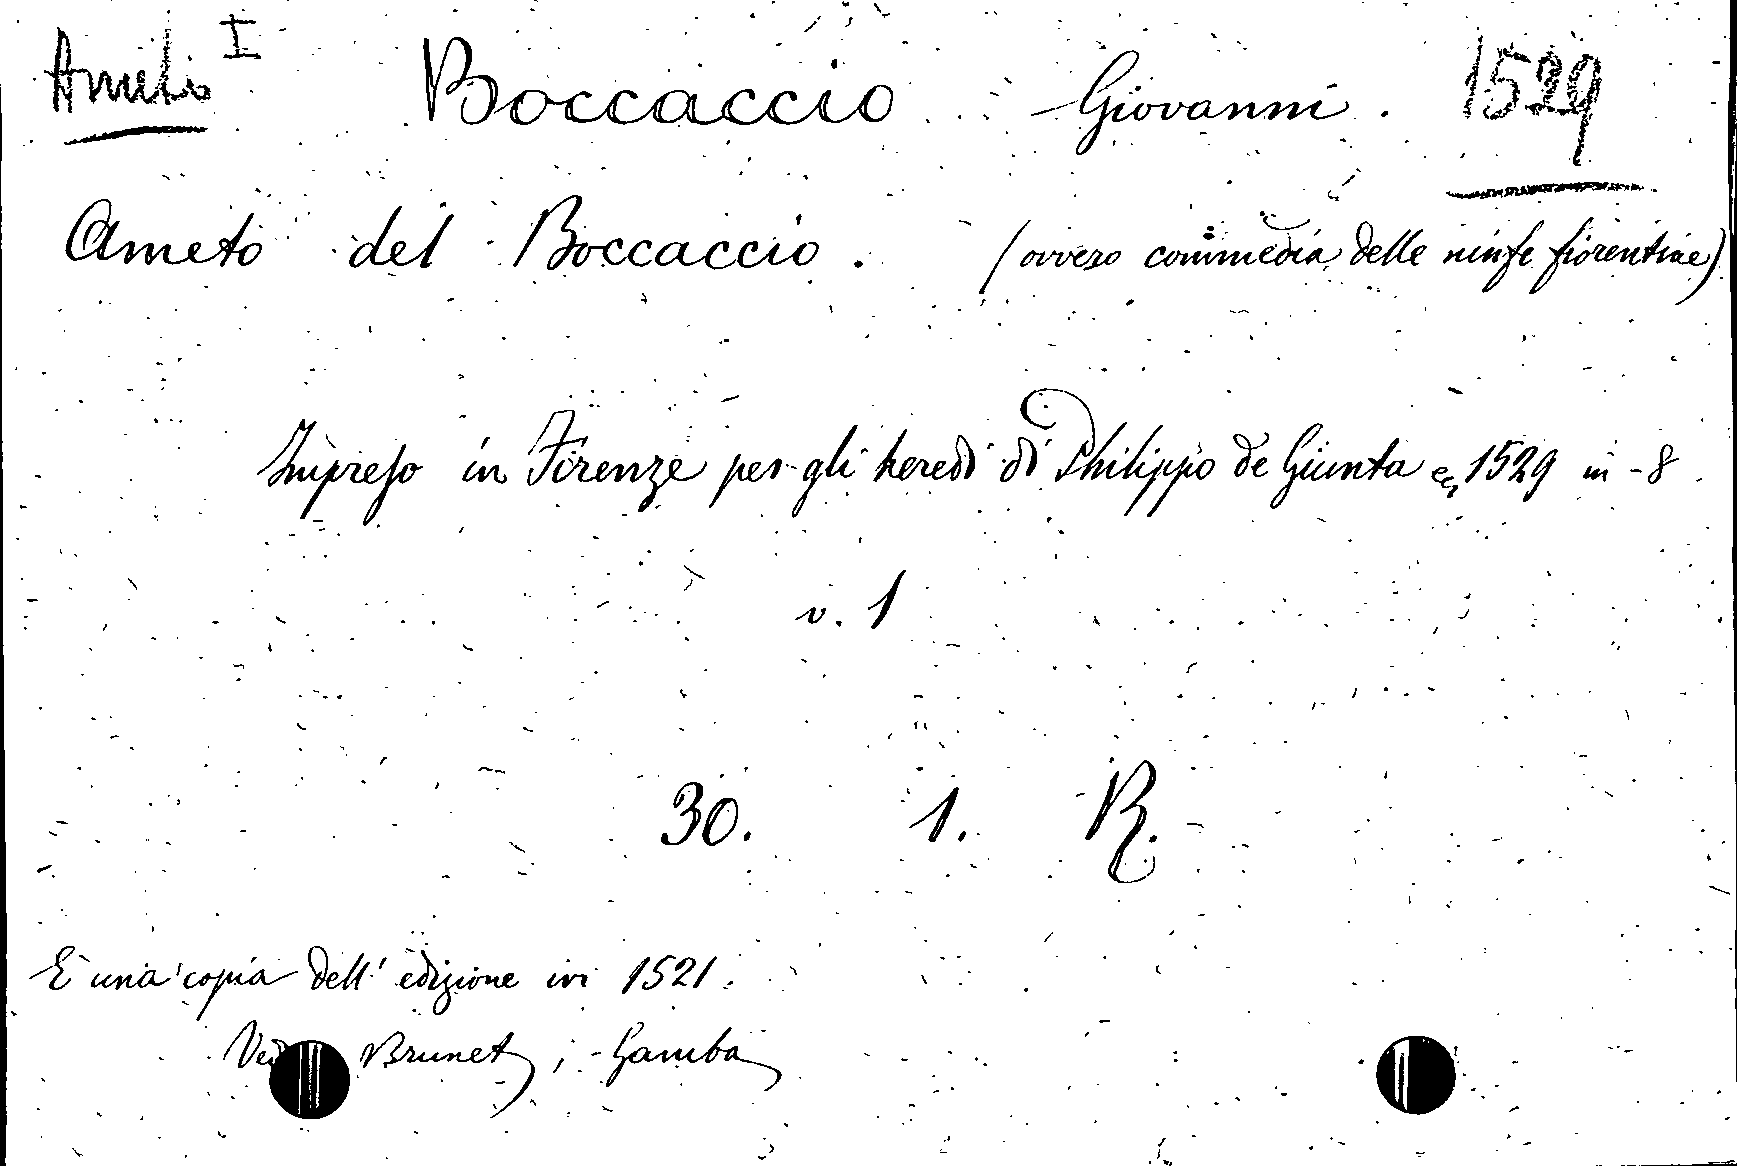 Ameto I Boccaccio Giovanni. 1529
Ameto del Boccaccio. (ovvero commedia delle ninfe fiorentine)
Impreso in Firenze per gli heredi di Philippo de Giunta 1529 in-8
v. 1
30. 1. R.
È una copia dell' edizione ivi 1521.
Brunet; Gamba